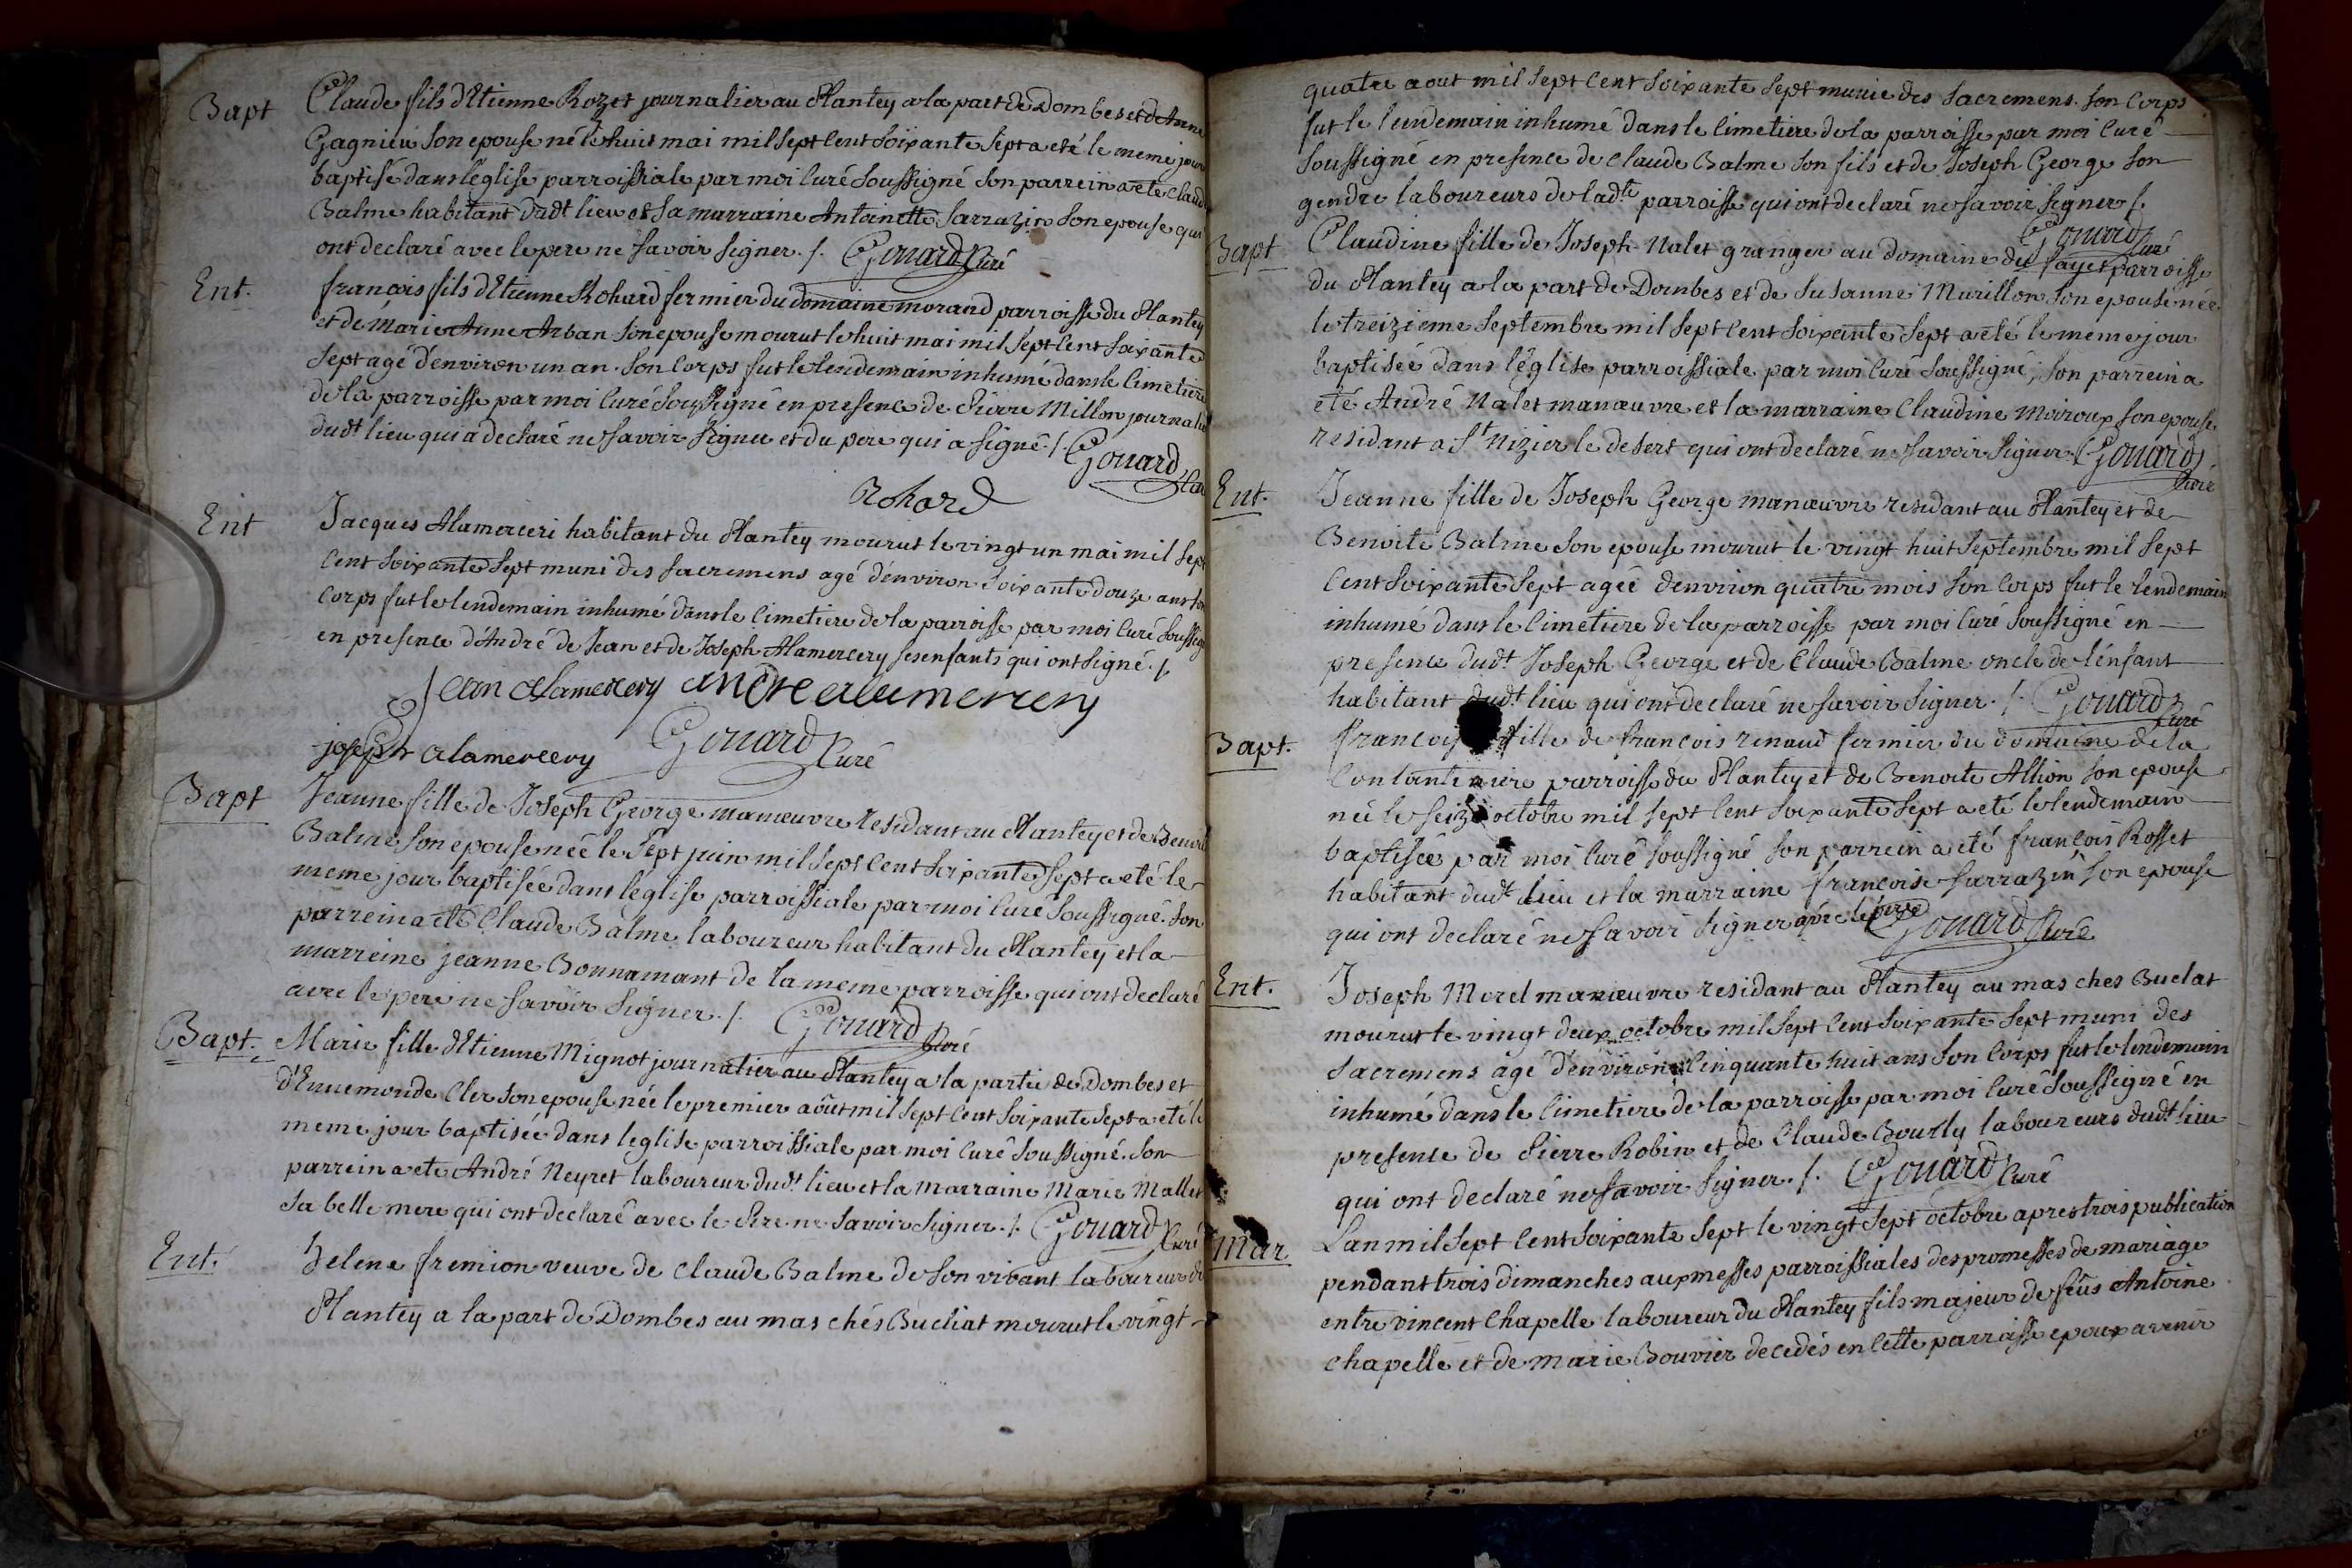 Bapt Claude fils d'Etienne Rozet journalier au Plantey a la part de Dombes et d'Anne
Gagnieu son epouse né le huit mai mil sept cent soixante sept a eté le meme jour
baptisé dans l'église parroissiale par moi curé soussigné son parrein a eté Claud
Balme habitant dudt lieu et sa marraine Antoinette Sarrazin son epouse qui
ont declaré avec le pere ne savoir signer ./. Gouard Curé
Ent. françois fils d'Etienne Rohard fermier du domaine morand parroisse du Plantey
et de Marie Anne Arban son epouse mourut le huit mai mil sept cent soixante
sept agé d'environ un an. son corps fut le lendemain inhumé dans le cimetiere
de la parroisse par moi curé soussigné en presence de Pierre Millon journalie
dudt lieu qui a declaré ne savoir signer et du pere qui a signé ./. Gouard
Rohard
Ent Jacques Alamerceri habitant du Plantey mourut le vingt un mai mil sept
cent soixante sept muni des sacremens agé d'environ soixante douze ans son
corps fut le lendemain inhumé dans le cimetiere de la parroisse par moi curé soussig
en presence d'André de Jean et de Joseph Alamercery ses enfants qui ont signé ./.
Jean alamercery andre alamercery
joseph alamercery Gouard Curé
Bapt Jeanne fille de Joseph George manœuvre residant au Plantey et de Benoite
Balme son epouse née le sept juin mil sept cent soixante sept a eté le
meme jour baptisée dans l'église parroissiale par moi curé soussigné. son
parrein a eté Claude Balme laboureur habitant du Plantey et la
marreine jeanne Bonnamant de la meme parroisse qui ont declaré
avec le pere ne savoir signer ./. Gouard Curé
Bapt. Marie fille d'Etienne Mignot journalier au Plantey a la partie de Dombes et
d'Ennemonde Cler son epouse née le premier août mil sept cent soixante sept a eté le
meme jour baptisée dans leglise parroissiale par moi curé soussigné. son
parrein a ete André Neyret laboureur dudt lieu et la marraine Marie Mallet
sa belle mere qui ont declaré avec le Pere ne savoir signer ./. Gouard Curé
Ent. helene fremion veuve de Claude Balme de son vivant laboureur du
Plantey a la part de Dombes au mas chés Bucliat mourut le vingt
quatre aout mil sept cent soixante sept munie des sacremens. son corps
fut le lendemain inhumé dans le cimetiere de la parroisse par moi curé
soussigné en presence de Claude Balme son fils et de Joseph George son
gendre laboureurs de ladte parroisse qui ont declaré ne savoir signer ./.
Gouard Curé
Bapt Claudine fille de Joseph Nalet granger au domaine du fayet parroisse
du Plantey a la part de Dombes et de Susanne Murillon son epouse née
le treizieme septembre mil sept cent soixante sept a eté le meme jour
baptisée dans l'église parroissiale par moi curé soussigné, son parrein a
eté André Nalet manœuvre et la marraine Claudine Moiroux son epouse
residant a St Nizier le desert qui ont declaré ne savoir signer. Gouard
Curé
Ent. Jeanne fille de Joseph George manœuvre residant au Plantey et de
Benoite Balme son epouse mourut le vingt huit septembre mil sept
cent soixante sept agée d'environ quatre mois son corps fut le lendemain
inhumé dans le cimetiere de la parroisse par moi curé soussigné en
presence dudt Joseph George et de Claude Balme oncle de l'enfant
habitant dudt lieu qui ont declaré ne savoir signer ./. Gouard Curé
Bapt. françois fille de françois renaud fermier du domaine de la
parroisse du Plantey et de Benoite Allion son epouse
née le seize octobre mil sept cent soixante sept a eté le lendemain
baptisée par moi curé soussigné son parrein a eté françois Rosset
habitant dudt lieu et la marraine françoise Sarrazin son epouse
qui ont declaré ne savoir signer avec le pere Gouard Curé
Ent. Joseph Morel manœuvre residant au Plantey au mas ches Buclat
mourut le vingt deux octobre mil sept cent soixante sept muni des
sacremens agé d'environ cinquante huit ans son corps fut le lendemain
inhumé dans le cimetiere de la parroisse par moi curé soussigné en
presence de Pierre Robin et de Claude Bourly laboureurs dudt lieu
qui ont declaré ne savoir signer ./. Gouard Curé
Mar. L'an mil sept cent soixante sept le vingt sept octobre apres trois publication
pendant trois dimanches aux messes parroissiales des promesses de mariage
entre vincent Chapelle laboureur du Plantey fils majeur de feus Antoine
chapelle et de marie Bouvier decedés en cette parroisse epoux avenir